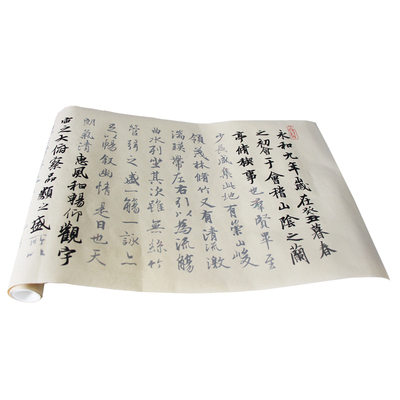 永和九年歲在癸丑暮春
之初會于會稽山陰之蘭
亭脩禊事也群賢畢至
少長咸集此地有崇山峻
領茂林脩竹又有清流激
湍暎帶左右引以為流觴
曲水列坐其次雖無絲竹
管弦之盛一觴一詠亦
足以暢叙幽情是日也天
朗氣清惠風和暢仰觀宇
宙之大俯察品類之盛